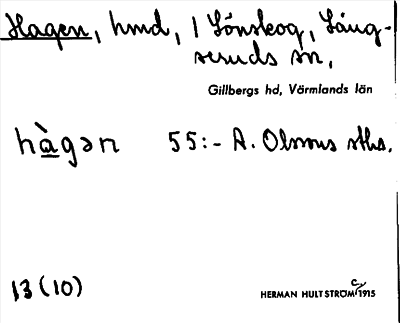 Hagen, hmd, / Lönskog, Lång-
seruds sn,
Gillbergs hd, Värmlands län
hàgən 55:- A. Olssons sths.
13 (10)
HERMAN HULTSTRÖM c/1915